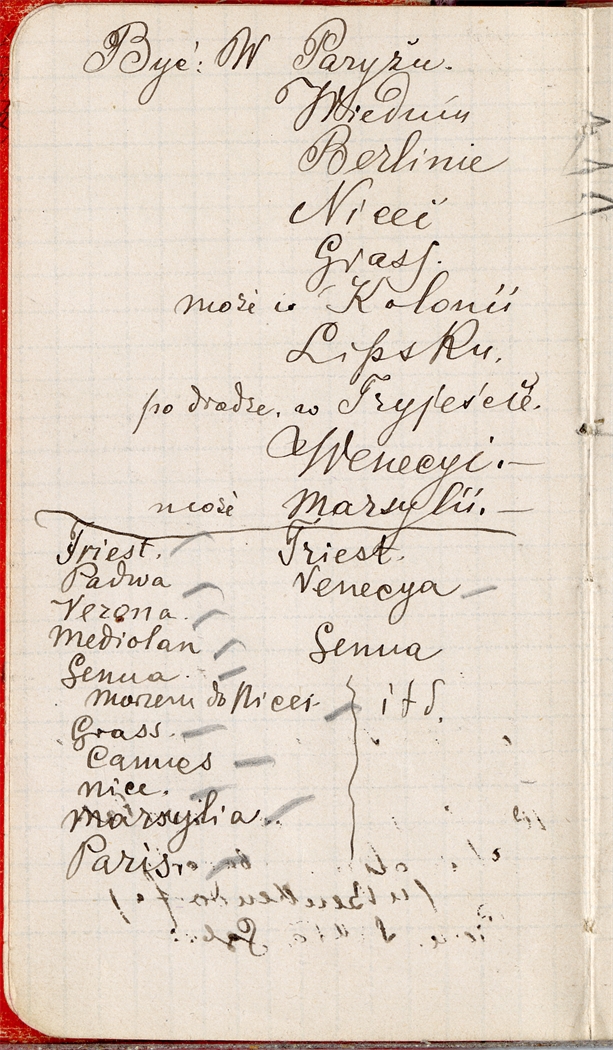 Być: W Paryżu.
Wiedniu
Berlinie
Niceé
Grass.
może w Kolonii
Lipsku.
po drodze, w Tryjeście.
Wenecyi.—
może Marsylii.—
Triest. Triest.
Padwa Venecya —
Verona
Mediolan Genua
Genua.
morzem do Nicei itd.
Grass.
Cannes
nice.
Marsylia.
Paris